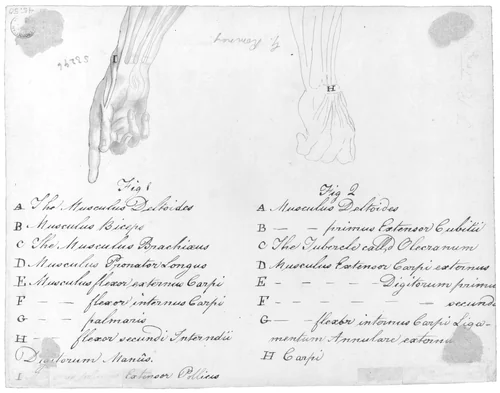 I
H
Fig 1
A The Musculus Deltoides
B Musculus Biceps
C The Musculus Brachiaus
D Musculus Pronator Longus
E Musculus flexor externus Carpi
F — — flexor internus Carpi
G — — palmaris
H — — flexor secundi Interndii
Digitorum Manûs.
I extensor Pollicis
Fig 2
A Musculus Deltoides
B — — primus Extensor Cubitii
C The Tubercle call'd Olecranum
D Musculus Extensor Carpi externus
E — — — — — Digitorum primus
F — — — — — — secundi
G — — flexor internus Carpi Liga-
mentum Annulare externu
H Carpi